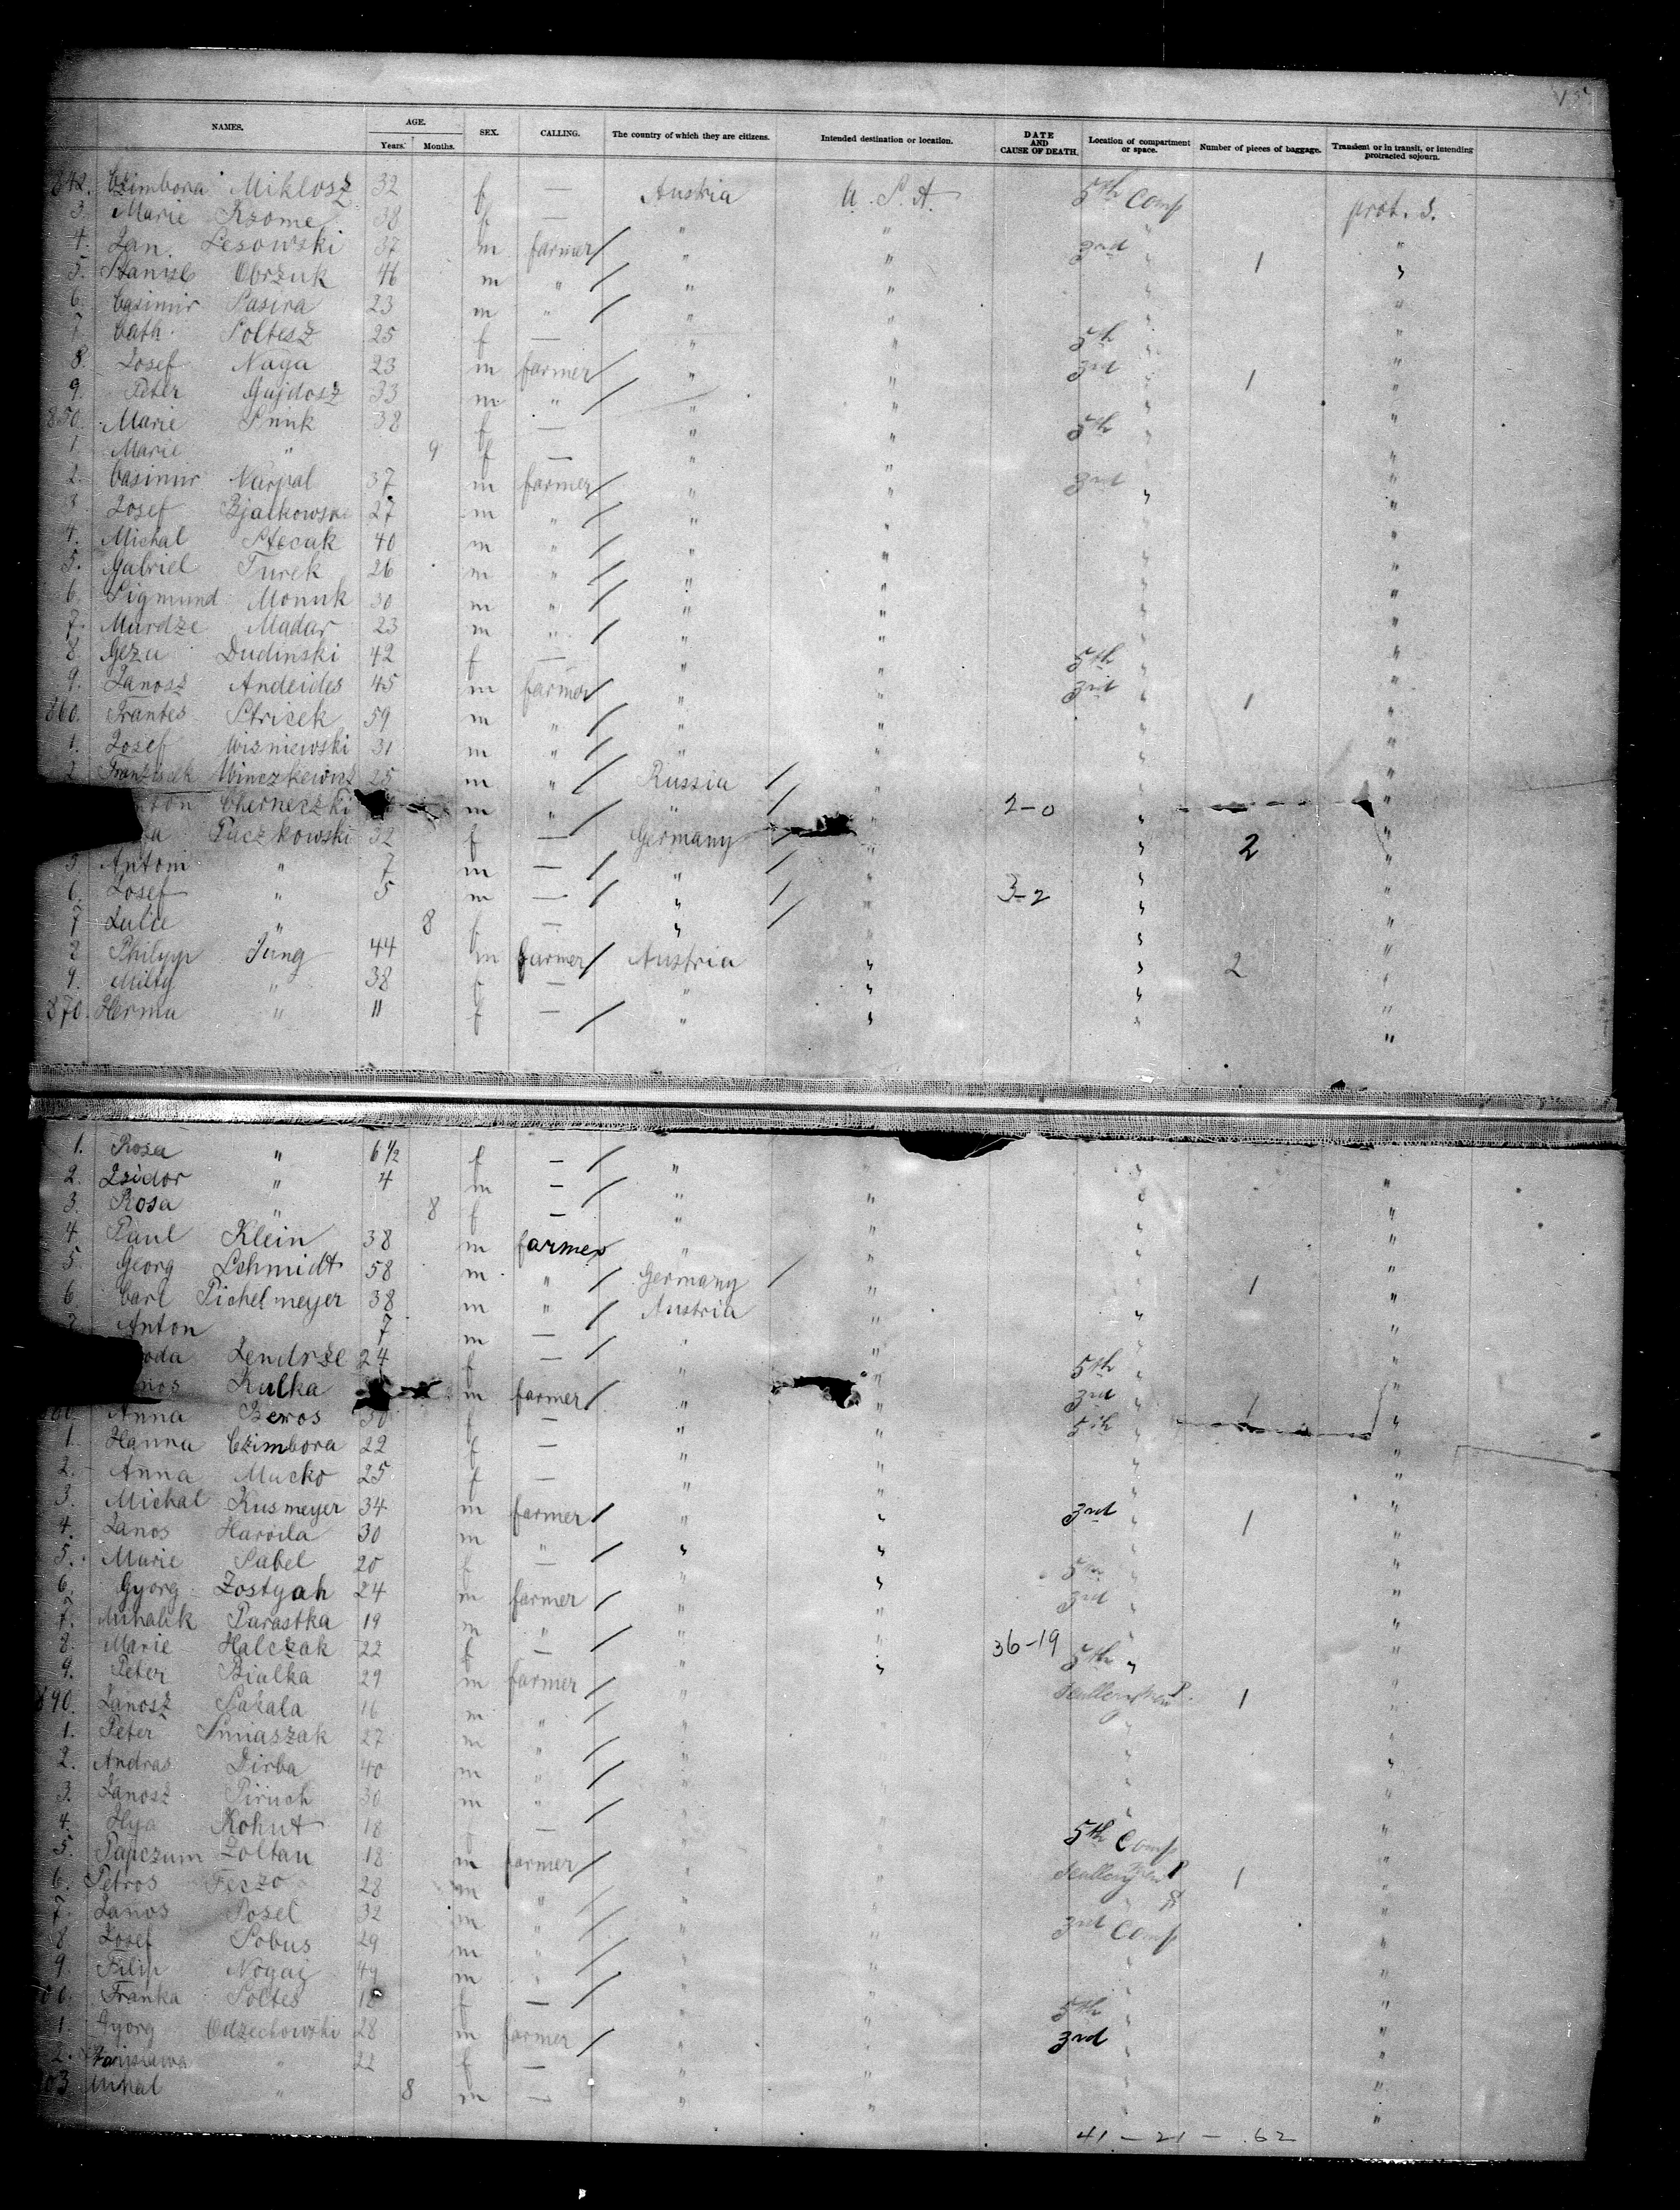 15
NAMES. AGE. Years. Months. SEX. CALLING. The country of which they are citizens. Intended destination or location. DATE AND CAUSE OF DEATH. Location of compartment or space. Number of pieces of baggage. Transient or in transit, or intending protracted sojourn.
842. Czimbora Miklosz 32 f — Austria U. S. A. 5th Comp prot. s.
3. Marie Kzome 38 f — " " " "
4. Jan Lesowski 37 m farmer / " " 3rd " "
5. Stanisl Obrzuk 46 m " / " " " 1 "
6. Casimir Pasira 23 m " / " " " "
7. Cath. Soltesz 25 f — " " 5th " "
8. Josef Naga 23 m farmer / " " 3rd " 1 "
9. Peter Gajdosz 33 m " / " " " "
850. Marie Smik 38 f — " " 5th " "
1. Marie " 9 f — " " "
2. Casimir Narpal 37 m farmer / " " 3rd " "
3. Josef Bjalkowski 27 m " / " " " "
4. Michal Stecak 40 m " / " " " "
5. Gabriel Turek 26 m " / " " " "
6. Sigmund Monuk 30 m " / " " " "
7. Mardze Madar 23 m " / " " " "
8 Geza Dudinski 42 f — " " 5th " "
9. Janosz Andeides 45 m farmer / " " 3rd " 1 "
860. Frantes Strisek 59 m " / " " " "
1. Josef Wisniewski 31 m " / " " " "
2 Franzisek Winczkewicz 25 m " / Russia / " " "
Cherneczki m " / " / " 2-0 " "
Paczkowski 32 f — Germany / " " 2 "
5 Antoni " 7 m — / " / " " "
6. Josef " 5 m — / " / " 3-2 " "
7 Julie " 8 f — " / " " "
8 Philipp Jung 44 m farmer / Austria " " 2 "
9. Milty " 38 f — " " " "
870. Herma " 11 f — / " " " "
1. Rosa " 6 1/2 f — / " "
2. Isidor " 4 m — / " " " "
3. Rosa " 8 f — " " " "
4. Paul Klein 38 m farmer " " " "
5 Georg Schmidt 58 m " / Germany / " " 1 "
6 Carl Pichelmeyer 38 m " / Austria " " "
Anton 7 m — / " " "
Jendrze 24 f — " " 5th " "
Kulka m farmer / " " 3rd " 1 "
Anna Beros 30 f — " " 5th " "
1. Hanna Czimbora 22 f — " " " "
2. Anna Macko 25 f — " " "
3. Michal Kusmeyer 34 m farmer / " " 3rd " 1 "
4. Janos Harvila 30 m " / " " "
5. Marie Sabel 20 f — " " 5th "
6. Gyorg Zostyah 24 m farmer / " " 3rd " "
7. Mihalik Parastka 19 m " / " " " "
8. Marie Halczak 22 f — " " 36-19 5th " "
9. Peter Bialka 29 m farmer / " 1 "
890. Janosz Sakala 16 m " / " " "
1. Peter Simaszak 27 m " / " " "
2. Andras Dirba 40 m " / " " "
3. Janosz Piruch 30 m " / " " "
4. Ilya Kohut 18 f — " 5th Comp "
5. Papczum Zoltan 18 m farmer / " " 1 "
6. Petros Feszo 28 m " / " " "
7. Janos Posel 32 m " / " " 3rd Comp "
8 Josef Sobus 29 m " / " " " "
9. Filip Nogaj 49 m " / " " " "
Franka Soltes 18 f — " " 5th " "
1. Gyorg Odzechowski 28 m farmer / " " 3rd " "
2. " 22 f — " " " "
03 Mihal " 8 m — " " " "
41 — 21 — 62